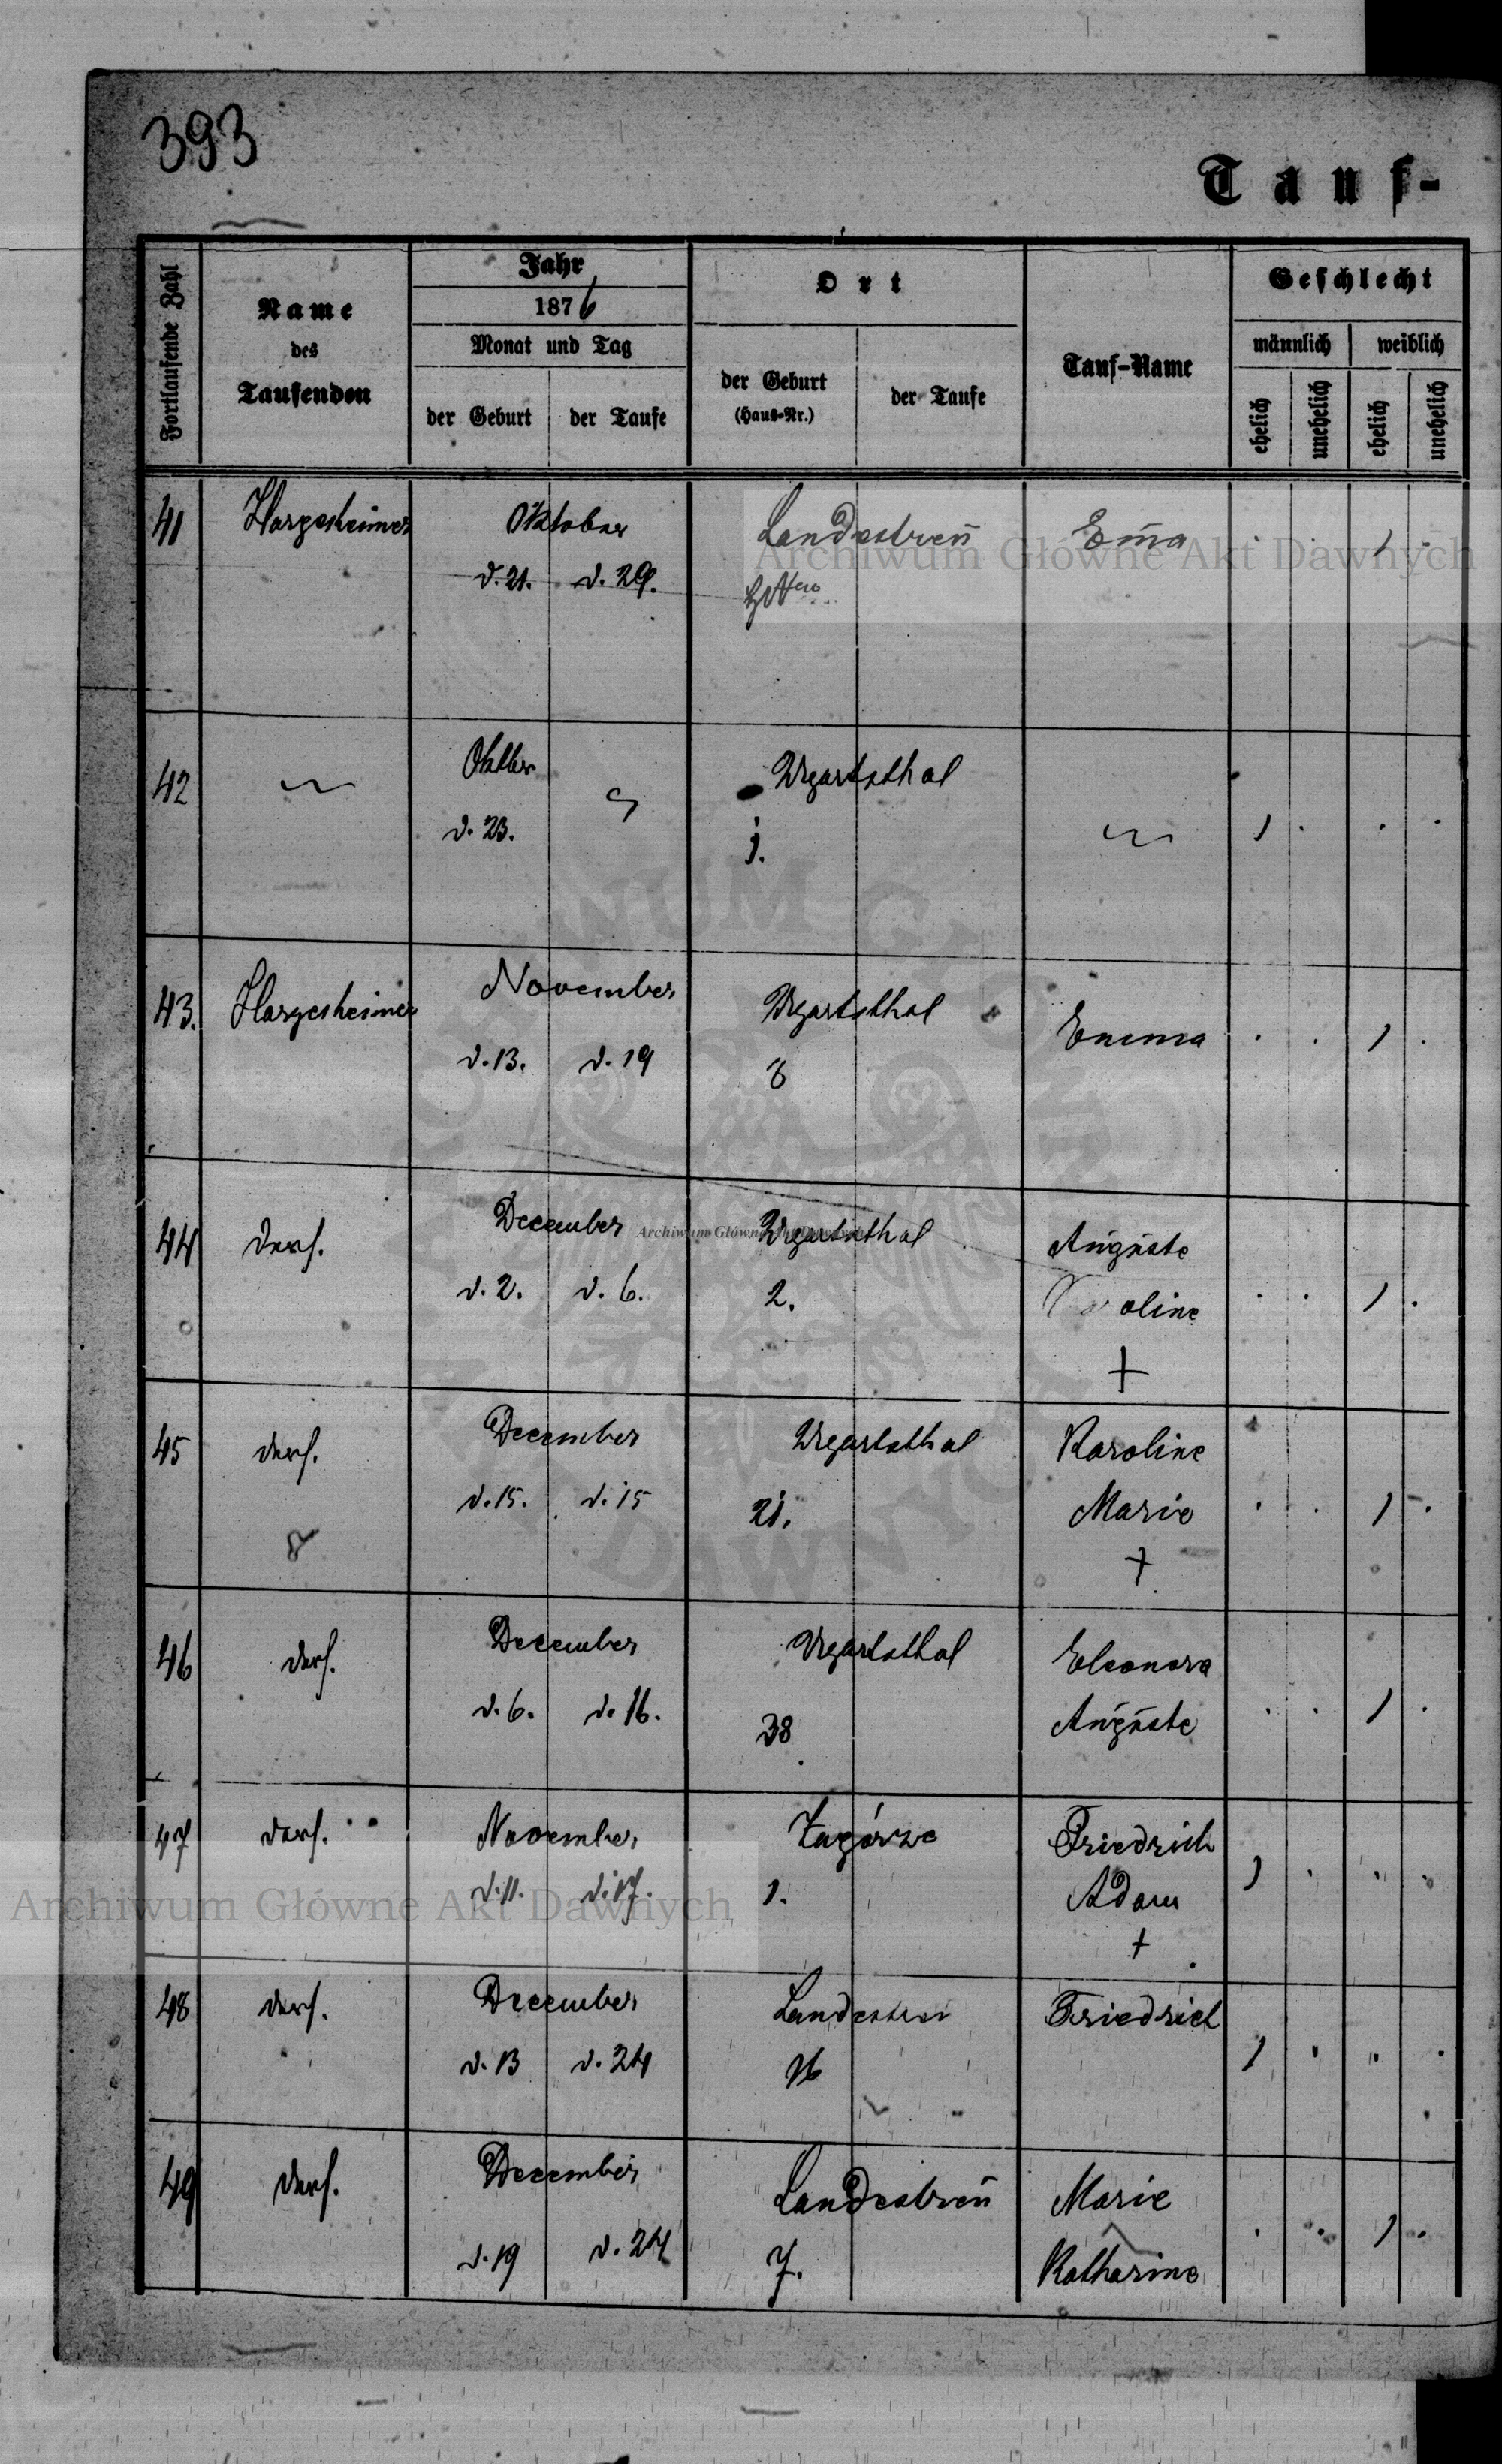 393
Tauf-
Fortlaufende Zahl
Name
des
Taufenden
Jahr
1876
Monat und Tag
der Geburt
der Taufe
Ort
der Geburt
(Haus-Nr.)
der Taufe
Tauf-Name
Geschlecht
männlich
weiblich
ehelich
unehelich
ehelich
unehelich
41 Hargesheimer Oktober Landestreü Em̄a . . 1 .
d. 21. d. 29.
Archiwum Główne Akt Dawnych
42 Oktber Ugartsthal
d. 23. 1. 1 . . .
43. Hargesheimer November Ugartsthal Emma . . 1 .
d. 13. d. 19 8
44 Ders. December Ugartsthal Auguste
d. 2. d. 6. 2. Karoline . . 1 .
+
Archiwum Główne Akt Dawnych
45 Ders. December Ugartsthal Karoline
d. 15. d. 15 21. Marie . . 1 .
+
46 Ders. December Ugartsthal Eleonora
d. 6. d. 16. 38 Auguste . . 1 .
47 Ders. November Zagórze Friedrich
d. 11. d. 17. 1. Adam 1 . . .
+
Archiwum Główne Akt Dawnych
48 Ders. December Landestreu Friedrich
d. 13 d. 24 16 1 . . .
49 Ders. December Landestreü Marie
d. 19 d. 24 7. Katharine . . 1 .